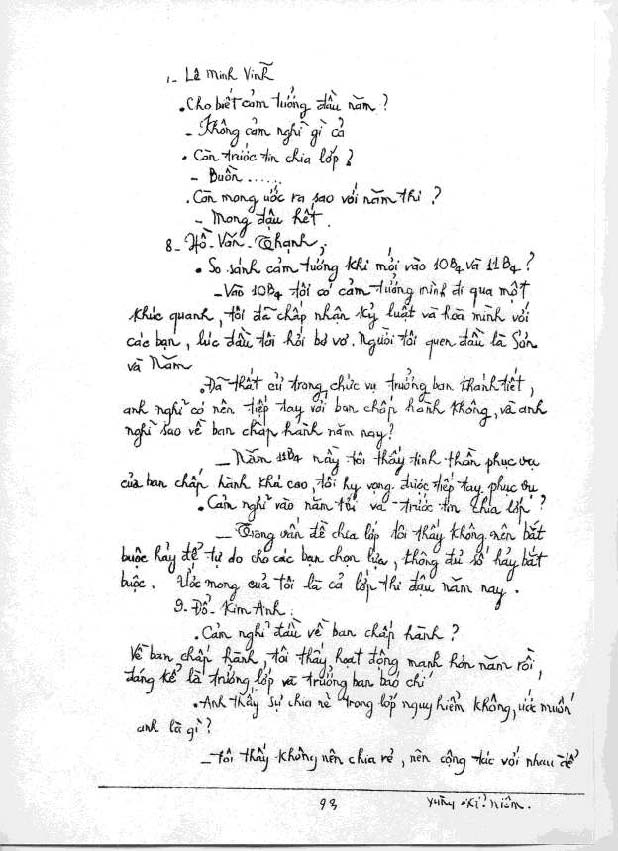 1- Lê Minh Vinh
• Cho biết cảm tưởng đầu năm?
- Không cảm nghỉ gì cả
• Còn trước tin chia lớp?
- Buồn......
. Còn mong ước ra sao với năm thi?
- Mong đậu hết.
8- Hồ-Văn-Thạnh:
• So sánh cảm tưởng khi mới vào 10B4 và 11B4?
- Vào 10B4 tôi có cảm tưởng mình đi qua một
khúc quanh, tôi đã chấp nhận kỷ luật và hoà mình với
các bạn, lúc đầu tôi hỏi bơ vơ. Người tôi quen đầu là Sơn
và Năm
• Đã thất cử trong chức vụ trưởng ban thanh tiết,
anh nghỉ có nên tiếp tay với ban chấp hành không, và anh
nghỉ sao về ban chấp hành năm nay?
- Năm 11B4 nầy tôi thấy tinh thần phục vụ
của ban chấp hành khá cao, tôi hy vọng được tiếp tay phục vụ
• Cảm nghỉ vào năm tới và trước tin chia lớp?
- Trong vấn đề chia lớp tôi thấy không nên bắt
buộc hảy để tự do cho các bạn chọn lựa, không đủ số hảy bắt
buộc. Ước mong của tôi là cả lớp thi đậu năm nay.
9- Đổ-Kim-Anh:
• Cảm nghỉ đầu về ban chấp hành?
Về ban chấp hành, tôi thấy hoạt động mạnh hơn năm rồi,
đáng kể là trưởng lớp và trưởng ban báo chí
• Anh thấy sự chia rẻ trong lớp nguy hiểm không, ước muốn
anh là gì?
- Tôi thấy không nên chia rẻ, nên cộng tác với nhau để
93